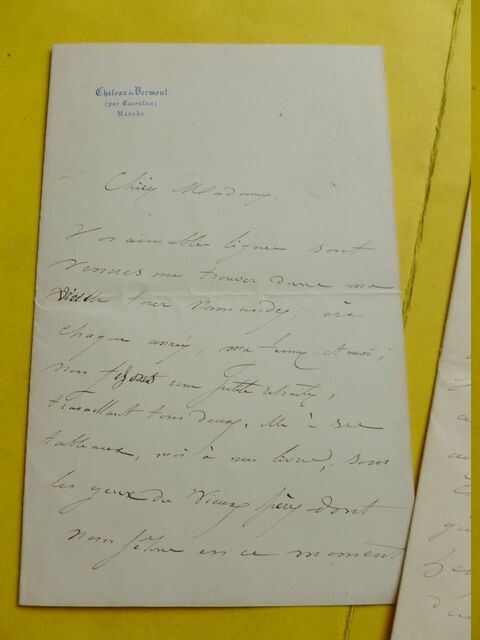 Château de Vermont
(par Carentan)
Manche
Chère Madame,
Vos aimables lignes sont
venues me trouver dans ma
vieille tour normande, où
chaque année, ma femme et moi,
nous faisons une petite retraite,
travaillant tous deux, elle à ses
tableaux, moi à mes livres, sous
les yeux du vieux père dont
nous fêtons en ce moment